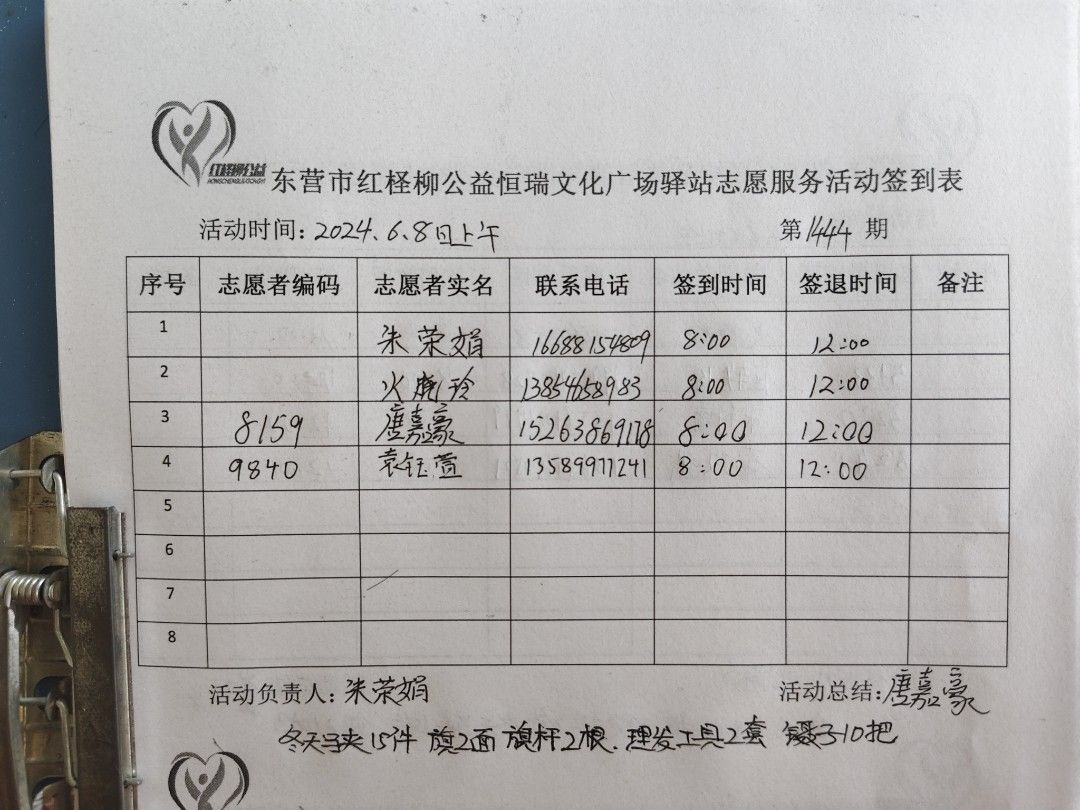 红柽柳公益
东营市红柽柳公益恒瑞文化广场驿站志愿服务活动签到表
活动时间：2024.6.8日上午 第1444期
序号 志愿者编码 志愿者实名 联系电话 签到时间 签退时间 备注
1 朱荣娟 16688154809 8:00 12:00
2 火 玲 13854658983 8:00 12:00
3 8159 唐嘉豪 15263869178 8:00 12:00
4 9840 袁钰萱 13589971241 8:00 12:00
5
6
7
8
活动负责人：朱荣娟 活动总结：唐嘉豪
冬天马夹15件 旗2面 旗杆2根、理发工具2套 镊子10把